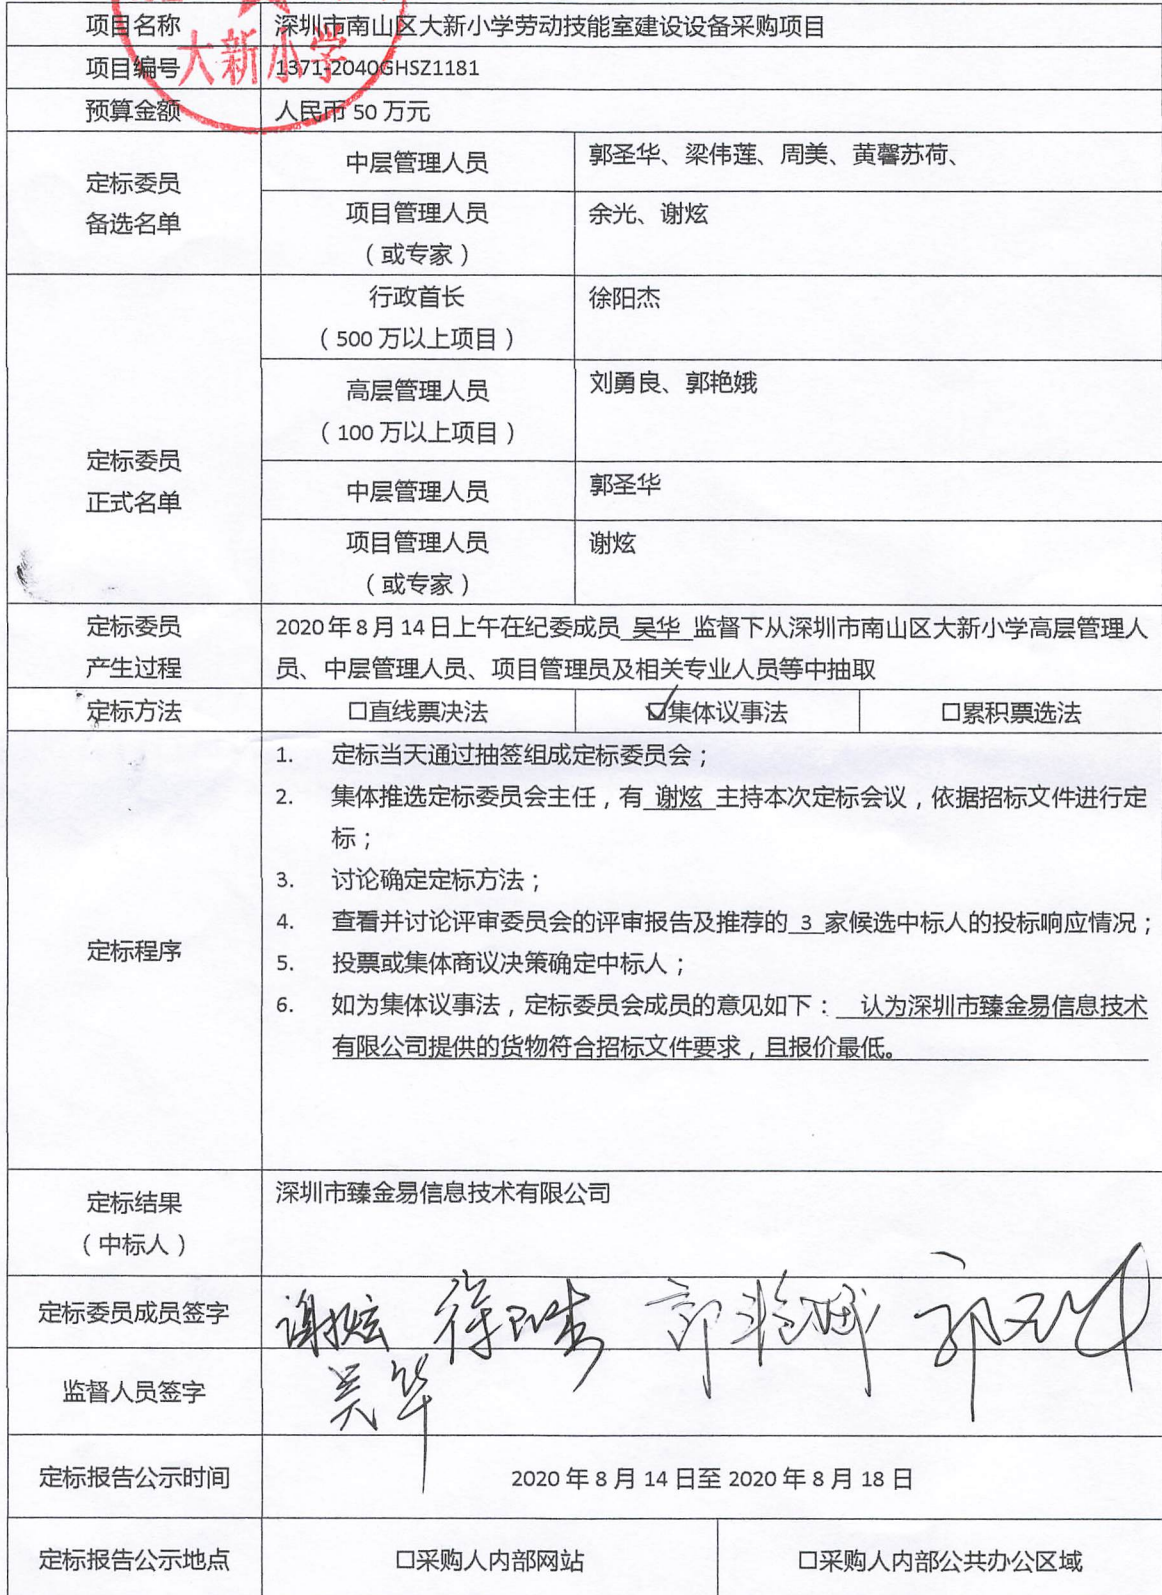 项目名称 深圳市南山区大新小学劳动技能室建设设备采购项目
大新小学
项目编号 1371-2040GHSZ1181
预算金额 人民币 50 万元
定标委员
备选名单
中层管理人员 郭圣华、梁伟莲、周美、黄馨苏荷、
项目管理人员 余光、谢炫
（或专家）
定标委员
正式名单
行政首长 徐阳杰
（500 万以上项目）
高层管理人员 刘勇良、郭艳娥
（100 万以上项目）
中层管理人员 郭圣华
项目管理人员 谢炫
（或专家）
定标委员
产生过程
2020 年 8 月 14 日上午在纪委成员 吴华 监督下从深圳市南山区大新小学高层管理人
员、中层管理人员、项目管理员及相关专业人员等中抽取
定标方法 口直线票决法 口集体议事法 口累积票选法
定标程序
1. 定标当天通过抽签组成定标委员会；
2. 集体推选定标委员会主任，有 谢炫 主持本次定标会议，依据招标文件进行定
标；
3. 讨论确定定标方法；
4. 查看并讨论评审委员会的评审报告及推荐的 3 家候选中标人的投标响应情况；
5. 投票或集体商议决策确定中标人；
6. 如为集体议事法，定标委员会成员的意见如下： 认为深圳市臻金易信息技术
有限公司提供的货物符合招标文件要求，且报价最低。
定标结果
（中标人）
深圳市臻金易信息技术有限公司
定标委员成员签字 谢炫 徐阳杰 郭艳娥 郭圣华
监督人员签字 吴华
定标报告公示时间 2020 年 8 月 14 日至 2020 年 8 月 18 日
定标报告公示地点 口采购人内部网站 口采购人内部公共办公区域